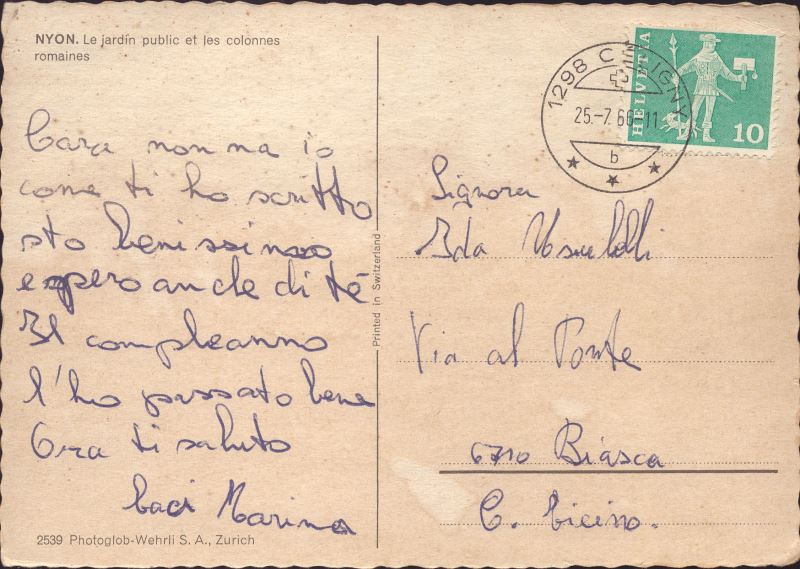 NYON. Le jardin public et les colonnes
romaines
Cara nonna io
come ti ho scritto
sto benissimo
e spero anche di té
Il compleanno
l'ho passato bene
Ora ti saluto
baci Marina
2539 Photoglob-Wehrli S. A., Zurich
Printed in Switzerland
1298 CÉLIGNY
25.-7.66-11
b
HELVETIA
10
Signora
Ida
Via al Ponte
6710 Biasca
C. Ticino.